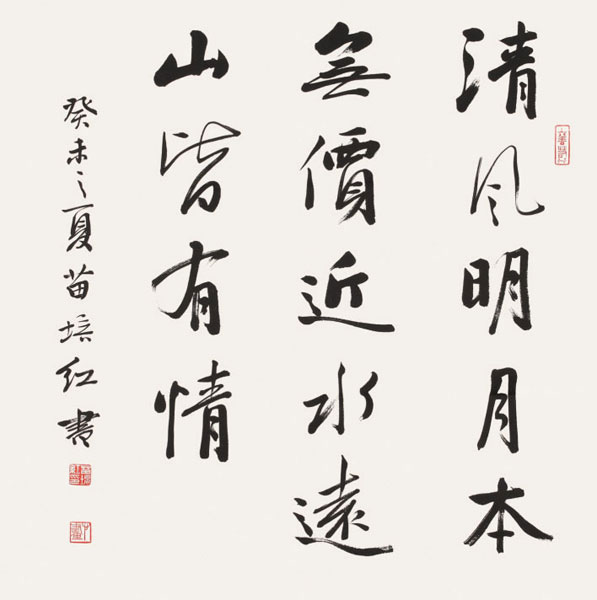 清風明月本
無價近水遠
山皆有情
癸未之夏苗培红書